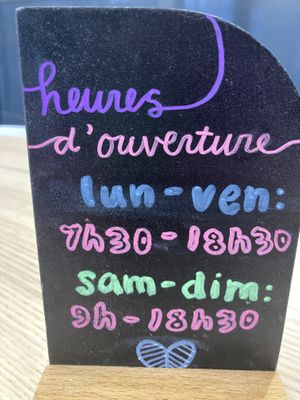 heures
d'ouverture
lun-ven:
7h30-18h30
sam-dim:
9h-18h30